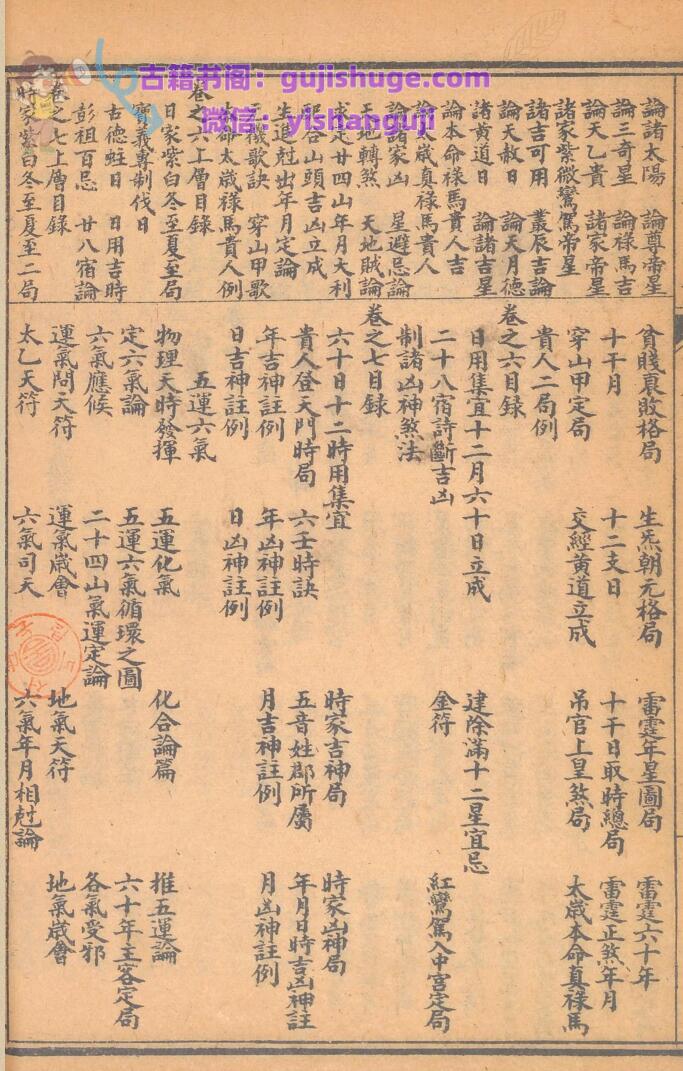 古籍书阁：gujishuge.com
微信：yishanguji
論諸太陽 論尊帝星
論三奇星 論祿馬吉
論天乙貴 諸家帝星
諸家紫微鸞駕帝星
諸吉可用 叢辰吉論
論天赦日 論天月德
諸黃道日 論諸吉星
論本命祿馬貴人吉
論太歲真祿馬貴人
論諸家凶 星避忌論
天地轉煞 天地賊論
求定廿四山年月大利
山頭吉凶立成
生進尅出年月定論
歌訣 穿山甲歌
命太歲祿馬貴人例
卷之六上層目錄
日家紫白冬至夏至局
寶義專制伐日
古德蛀日 日用吉時
彭祖百忌 廿八宿論
卷之七上層目錄
時家紫白冬至夏至二局
貧賤夏敗格局 生炁朝元格局 雷霆年星圖局 雷霆六十年
十干月 十二支日 十干日取時總局 雷霆正煞年月
穿山甲定局 交經黃道立成 吊宮上皇煞局 太歲本命真祿馬
貴人二局例
卷之六目録
日用集宜十二月六十日立成 建除滿十二星宜忌
二十八宿詩斷吉凶 金符 紅鸞駕入中宮定局
制諸凶神煞法
卷之七目録
六十日十二時用集宜 時家吉神局 時家凶神局
貴人登天門時局 六壬時訣 五音姓郡所屬 年月日時吉凶神註
年吉神註例 年凶神註例 月吉神註例 月凶神註例
日吉神註例 日凶神註例
五運六氣
物理天時發揮 五運化氣 化合論篇 推五運論
定六氣論 五運六氣循環之圖 六十年主客定局
六氣應候 二十四山氣運定論 各氣受邪
運氣問天符 運氣歲會 地氣天符 地氣歲會
太乙天符 六氣司天 六氣年月相尅論